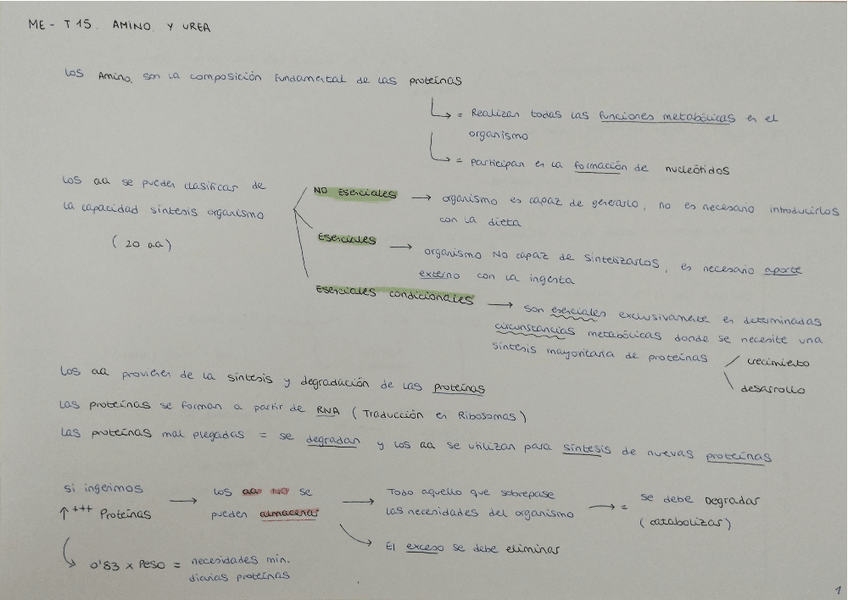 ME - T 15. AMINO Y UREA
Los Amino. son la composición fundamental de las proteínas
↳ = Realizan todas las funciones metabólicas en el
organismo
↳ = participan en la formación de nucleótidos
Los aa se pueden clasificar de
la capacidad síntesis organismo
(20 aa)
NO Esenciales → organismo es capaz de generarlo, no es necesario introducirlos
con la dieta
Esenciales → organismo NO capaz de sintetizarlos, es necesario aporte
externo con la ingesta
Esenciales condicionales → son esenciales exclusivamente en determinadas
circunstancias metabólicas donde se necesite una
síntesis mayoritaria de proteínas
crecimiento
desarrollo
Los aa provienen de la síntesis y degradación de las proteínas
Las proteínas se forman a partir de RNA (Traducción en Ribosomas)
Las proteínas mal plegadas = se degradan y los aa se utilizan para síntesis de nuevas proteínas
si ingerimos
↑+++ Proteínas
→ Los aa NO se
pueden almacenar
→ Todo aquello que sobrepase
las necesidades del organismo
→ = se debe Degradar
(catabolizar)
El exceso se debe eliminar
0'83 x Peso = necesidades mín.
diarias proteínas
1